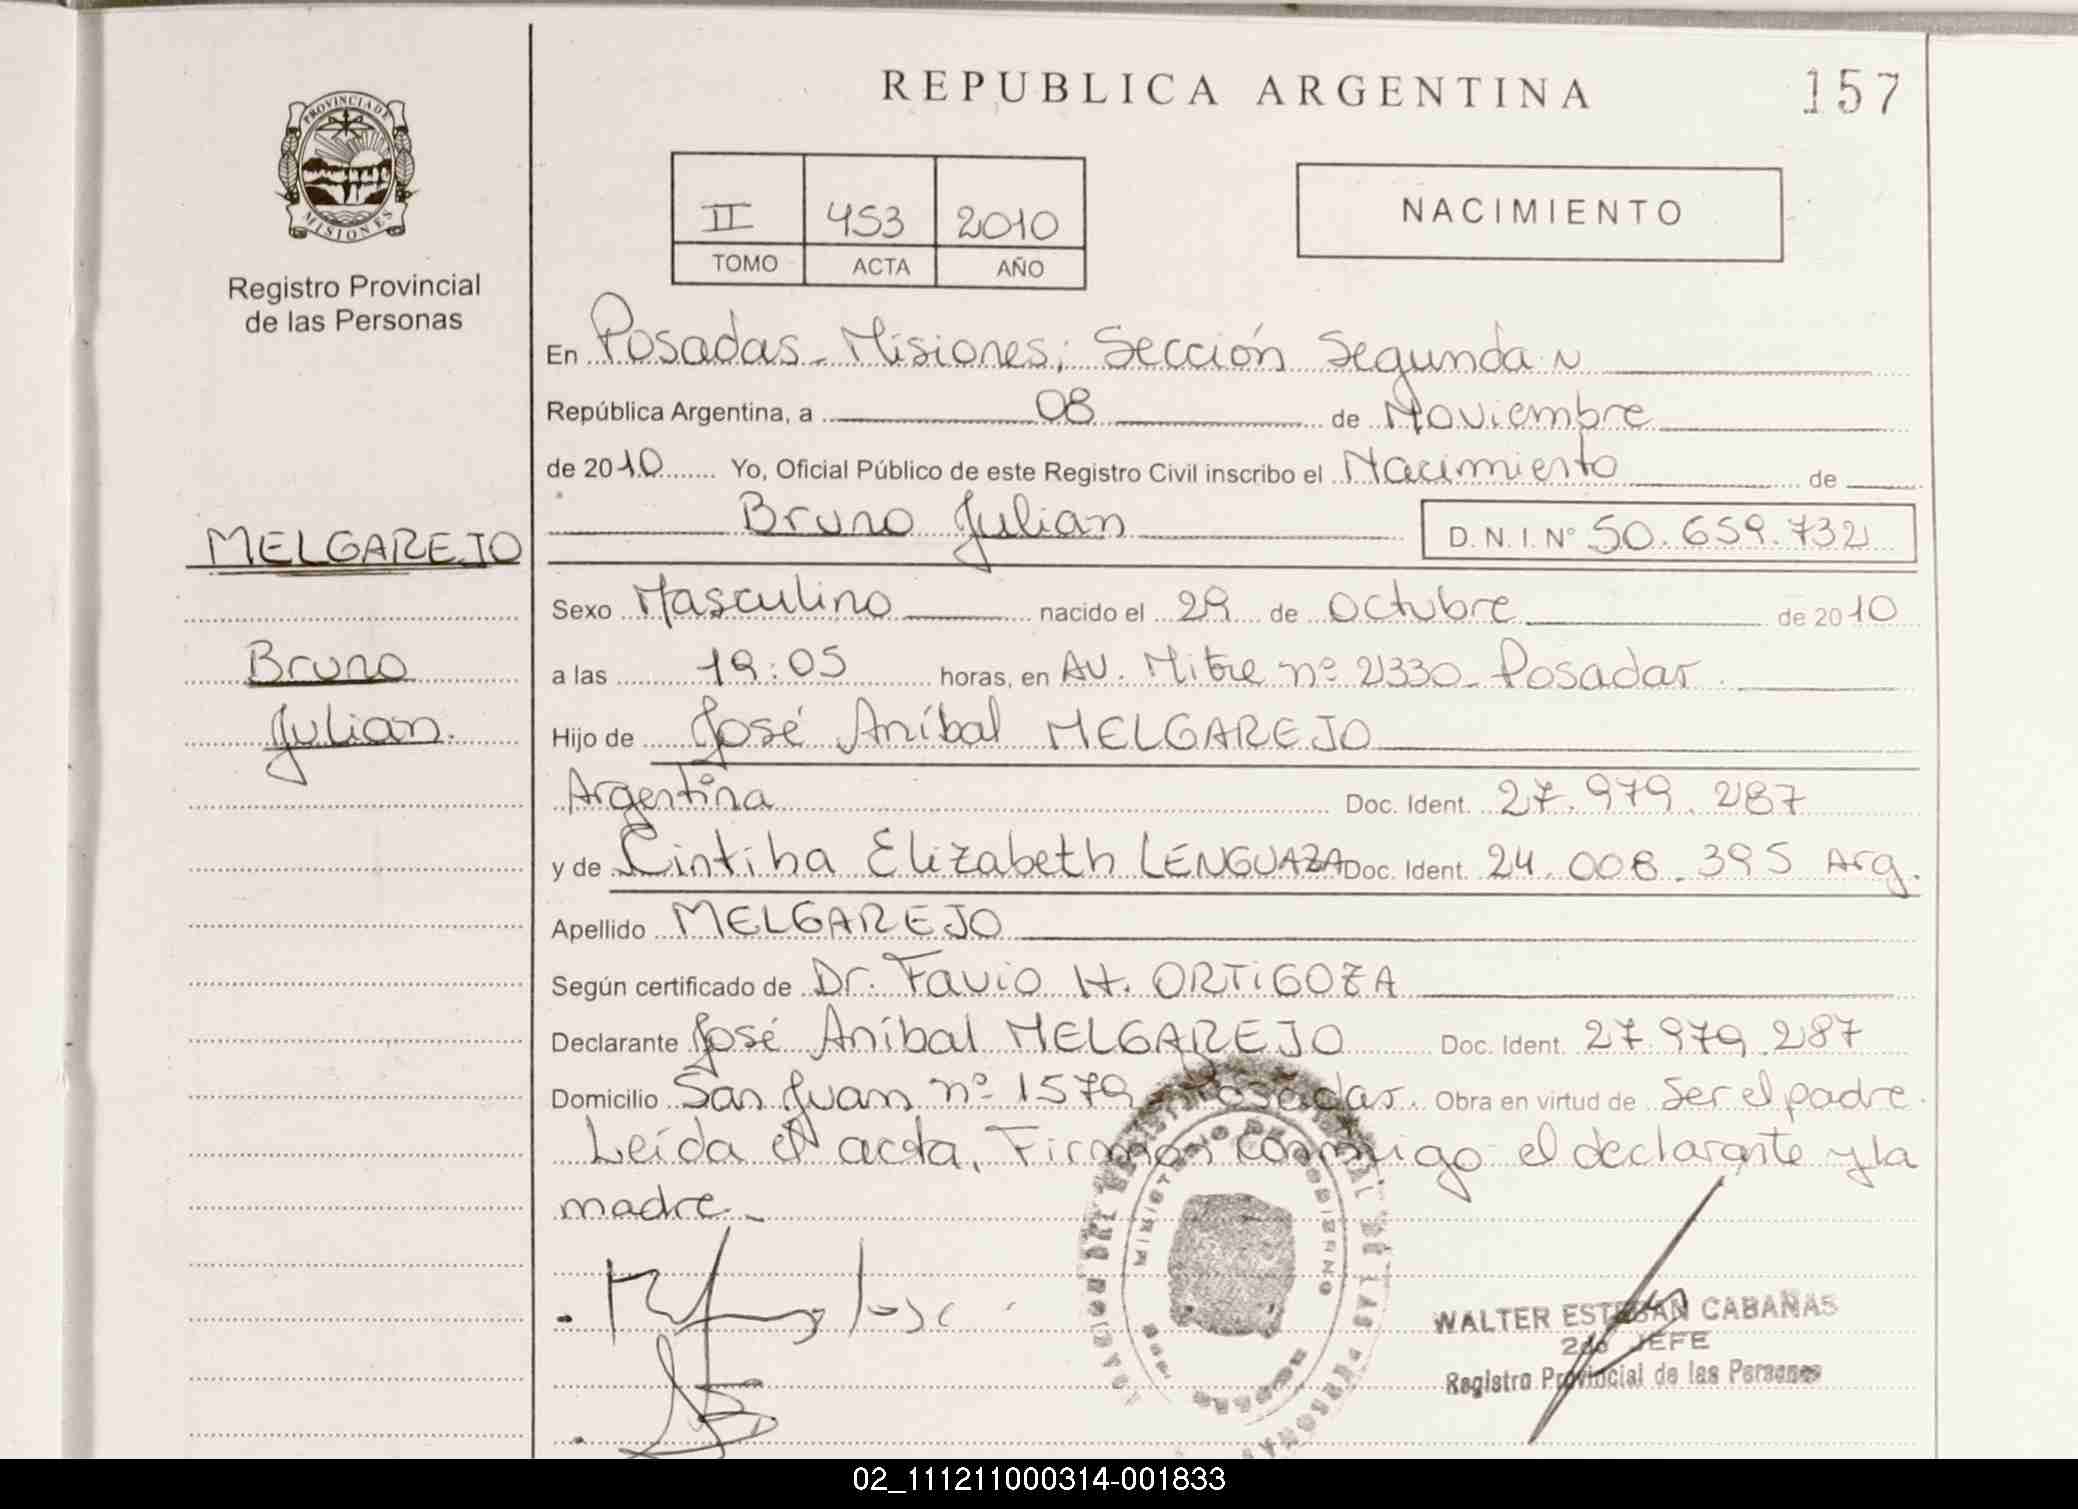 REPUBLICA ARGENTINA
157
PROVINCIA DE
MISIONES
Registro Provincial
de las Personas
II 453 2010
TOMO ACTA AÑO
NACIMIENTO
En Posadas - Misiones; Sección Segunda
República Argentina, a 08 de Noviembre
de 2010 Yo, Oficial Público de este Registro Civil inscribo el Nacimiento de
MELGAREJO
Bruno Julian D.N.I. Nº 50.659.732
Sexo Masculino nacido el 29 de Octubre de 2010
Bruno
a las 19:05 horas, en AV. Mitre nº 2330 - Posadas.
Julian.
Hijo de José Aníbal MELGAREJO
Argentina Doc. Ident. 27.979.287
y de Cintiha Elizabeth LENGUAZA Doc. Ident. 24.008.395 Arg.
Apellido MELGAREJO
Según certificado de Dr. Favio H. ORTIGOZA
Declarante José Aníbal MELGAREJO Doc. Ident. 27.979.287
Domicilio San Juan nº 1579 - Posadas. Obra en virtud de Ser el padre.
Leída el acta, Firman conmigo el declarante y la
madre.-
MINISTERIO DE GOBIERNO
DE LAS PERSONAS
WALTER ESTEBAN CABAÑAS
2do JEFE
Registro Provincial de las Personas
02_111211000314-001833